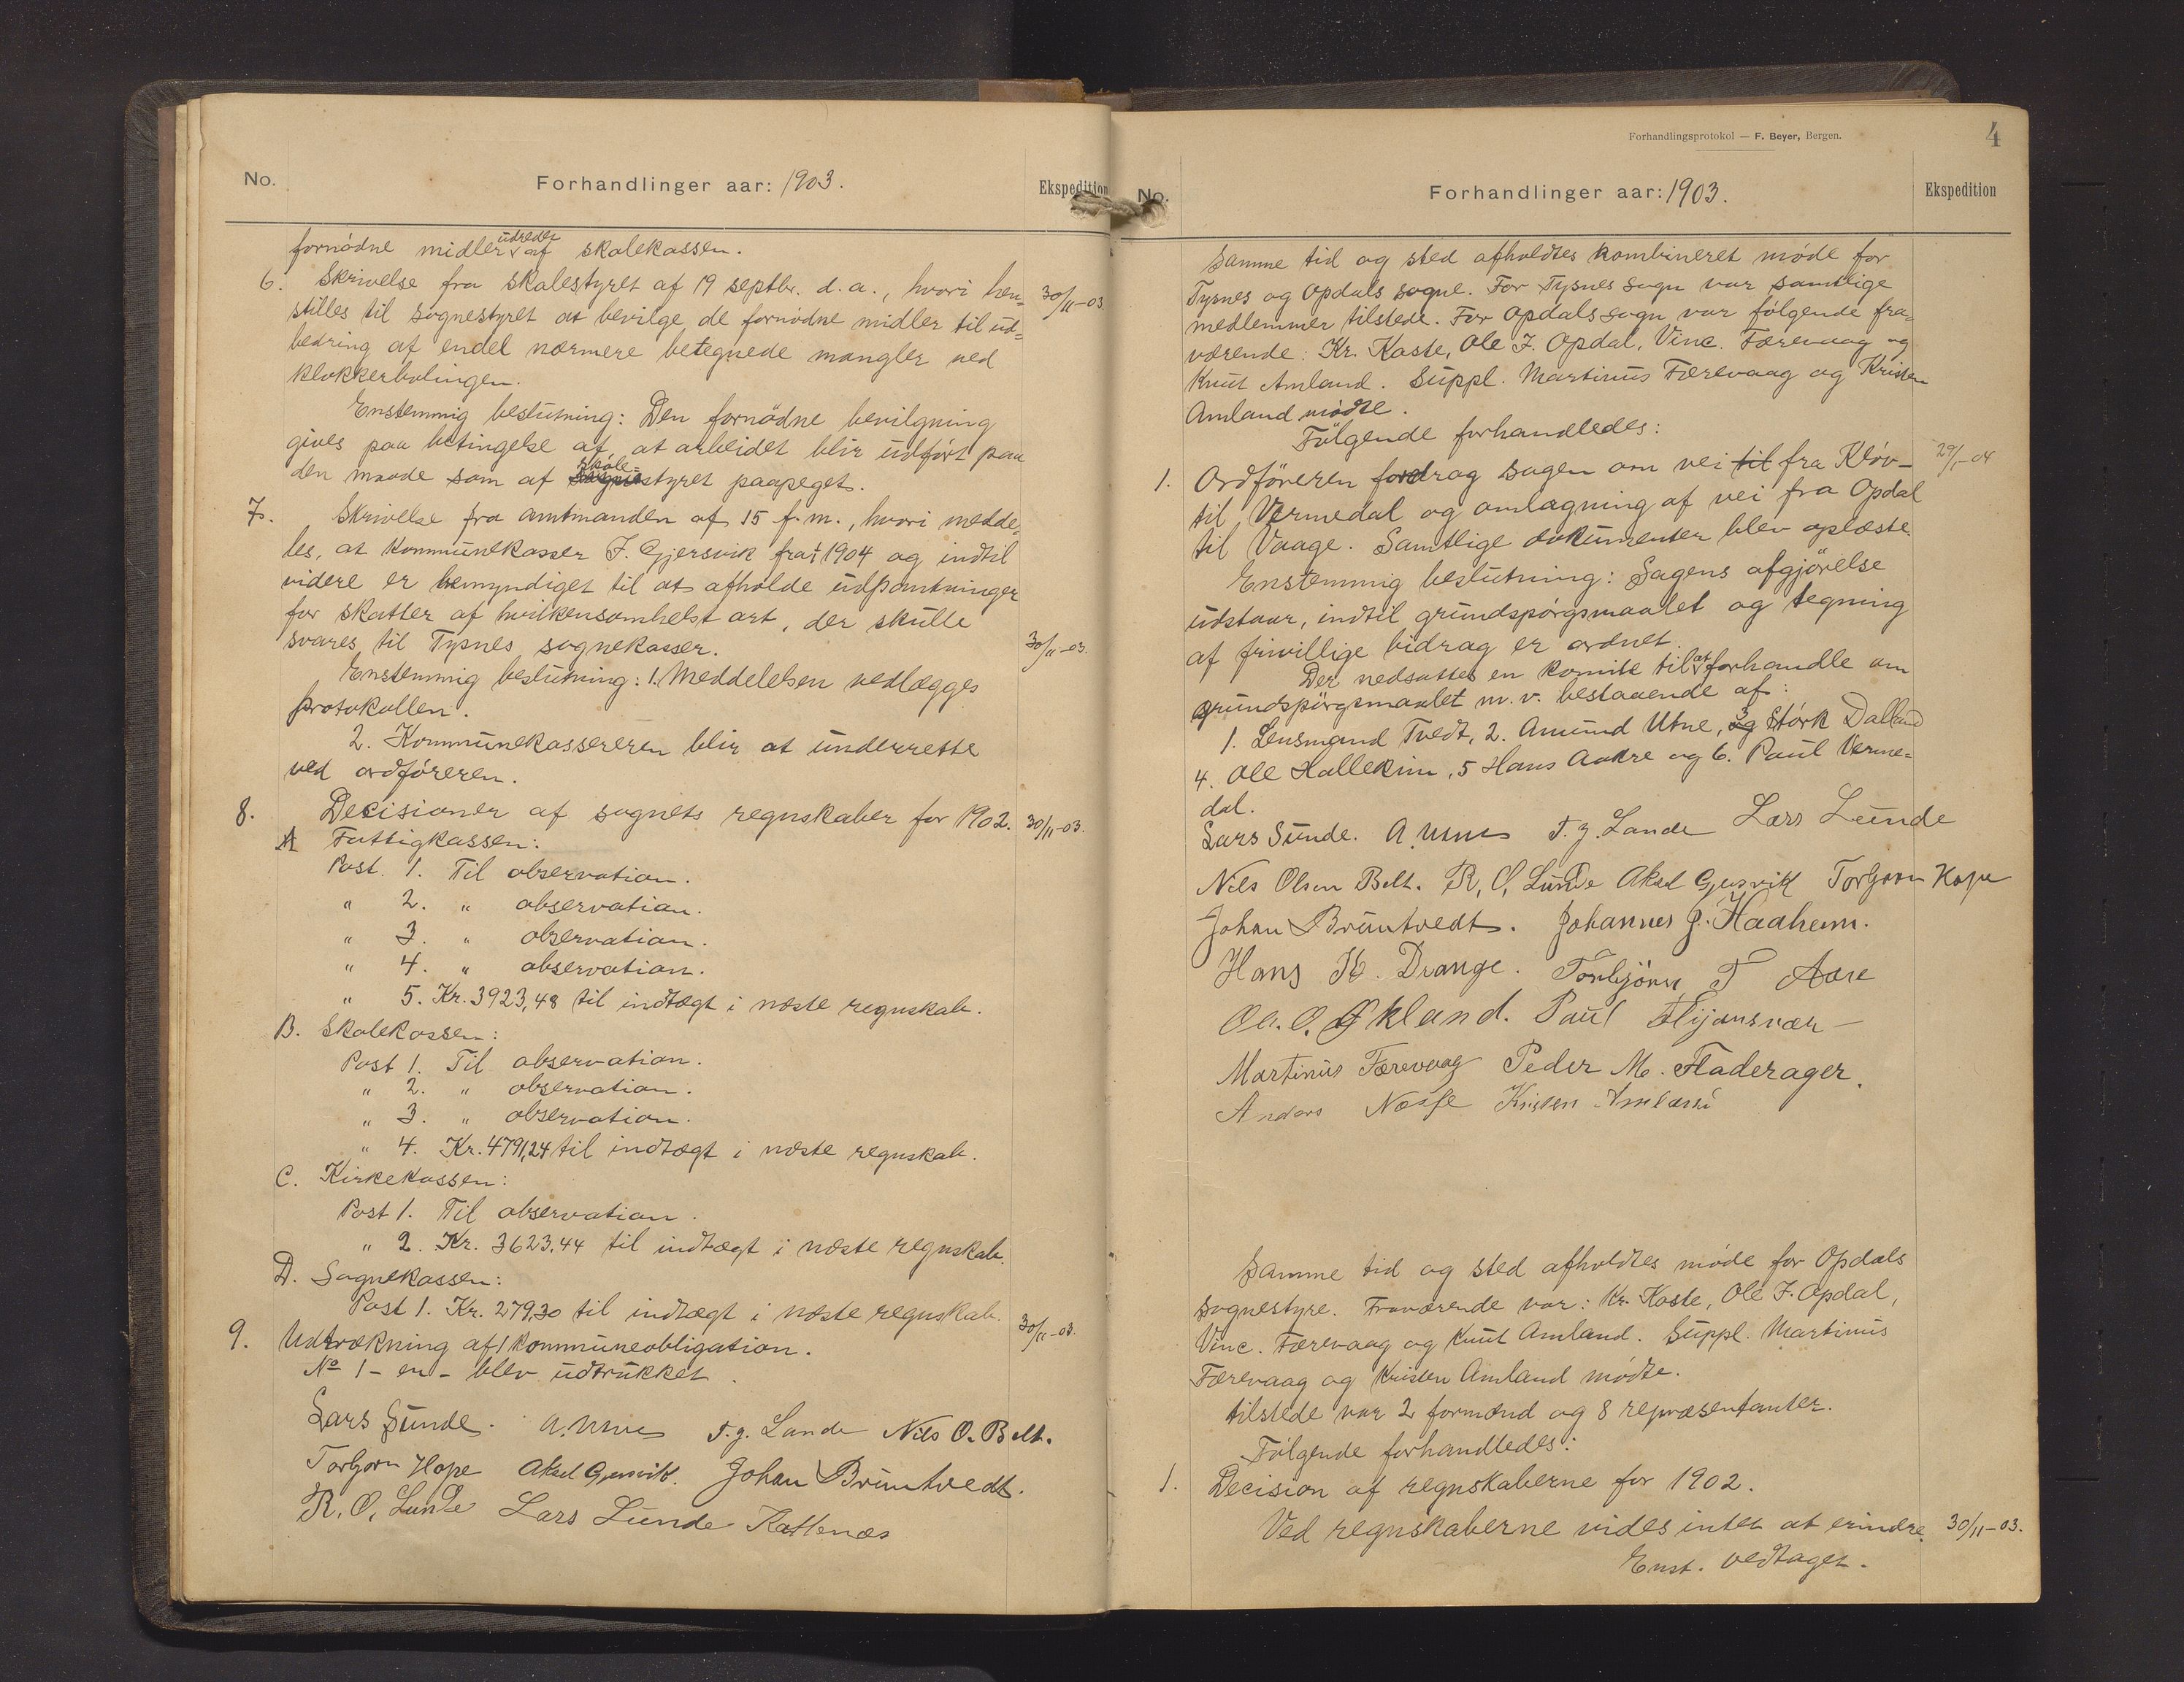 No.
Forhandlinger aar: 1903.
Ekspedition
fornødne midler udredet af skolekassen.
6. Skrivelse fra skolestyret af 19 septbr. d.a., hvori hen= 30/11-03.
stilles til sognestyret at bevilge de fornødne midler til ud=
bedring af endel nærmere betegnede mangler ved
klokkerboligen.
Enstemmig beslutning: Den fornødne bevilgning
gives paa betingelse af, at arbeidet blir udført paa
den maade som af skole=styret paapeget.
7. Skrivelse fra amtmanden af 15 f.m., hvori medde=
les, at kommunekasser J. Gjersvik fra 1/1 1904 og indtil
videre er bemyndiget til at afholde udpantninger
for skatter af hvilkensomhelst art, der skulle
svares til Tysnes sognekasser. 30/11-03.
Enstemmig beslutning: 1. Meddelelsen vedlægges
protokollen.
2. Kommunekassereren blir at underrette
ved ordføreren.
8. Decisioner af sognets regnskaber for 1902. 30/11-03.
A Fattigkassen:
Post. 1. Til observation.
" 2. " observation.
" 3. " observation.
" 4. " observation.
" 5. Kr. 3923,48 til indtægt i næste regnskab.
B. Skolekassen:
Post 1. Til observation.
" 2. " observation.
" 3. " observation.
" 4. Kr. 4791,24 til indtægt i næste regnskab.
C. Kirkekassen:
Post 1. Til observation.
" 2. Kr. 3623,44 til indtægt i næste regnskab.
D. Sognekassen:
Post 1. Kr. 279,30 til indtægt i næste regnskab.
9. Udtrækning af 1 kommuneobligation. 30/11-03.
No 1 - en - blev udtrukket.
Lars Sunde. A. Utne T. J. Lande Nils O. Belt.
Torbjørn Hope Aksel Gjersvik. Johan Bruntvedt.
R. O. Lunde Lars Lunde Kattenæs
Forhandlingsprotokol — F. Beyer, Bergen.
4
No.
Forhandlinger aar: 1903.
Ekspedition
Samme tid og sted afholdtes kombineret møde for
Tysnes og Opdals sogne. For Tysnes sogn var samtlige
medlemmer tilstede. For Opdals sogn var følgende fra=
værende: Kr. Kaste, Ole J. Opdal, Vinc. Færevaag og
Knut Amland. Suppl. Martinus Færevaag og Kristen
Amland mødte.
Følgende forhandledes:
1. Ordføreren foredrog sagen om vei til fra Kløv- 29/1-04
til Vermedal og omlægning af vei fra Opdal
til Vaage. Samtlige dokumenter blev oplæste.
Enstemmig beslutning: Sagens afgjørelse
udstaar, indtil grundspørgsmaalet og tegning
af frivillige bidrag er ordnet.
Der nedsattes en komite til at forhandle om
grundspørgsmaalet m.v. bestaaende af:
1. Lensmand Tvedt, 2. Amund Utne, 3 Størk Dalland
4. Ole Hallekim, 5 Hans Aakre og 6. Paul Verme=
dal.
Lars Sunde. A. Utne T. J. Lande Lars Lunde
Nils Olsen Belt. R. O. Lunde Aksel Gjersvik Torbjørn Hope
Johan Bruntvedt. Johannes J. Haaheim.
Hans K. Drange. Torbjörn T Aase
Ol. O. Økland. Paul Flijansvær
Martinus Færevaag Peder M. Fladerager.
Anders Næsse Kristen Amland
Samme tid og sted afholdtes møde for Opdals
sognestyre. Fraværende var: Kr. Kaste, Ole J. Opdal,
Vinc. Færevaag og Knut Amland. Suppl. Martinus
Færevaag og Kristen Amland mødte.
tilstede var 2 formænd og 8 repræsentanter.
Følgende forhandledes:
1. Decision af regnskaberne for 1902.
Ved regnskaberne vides intet at erindre. 30/11-03.
Enst. vedtaget.